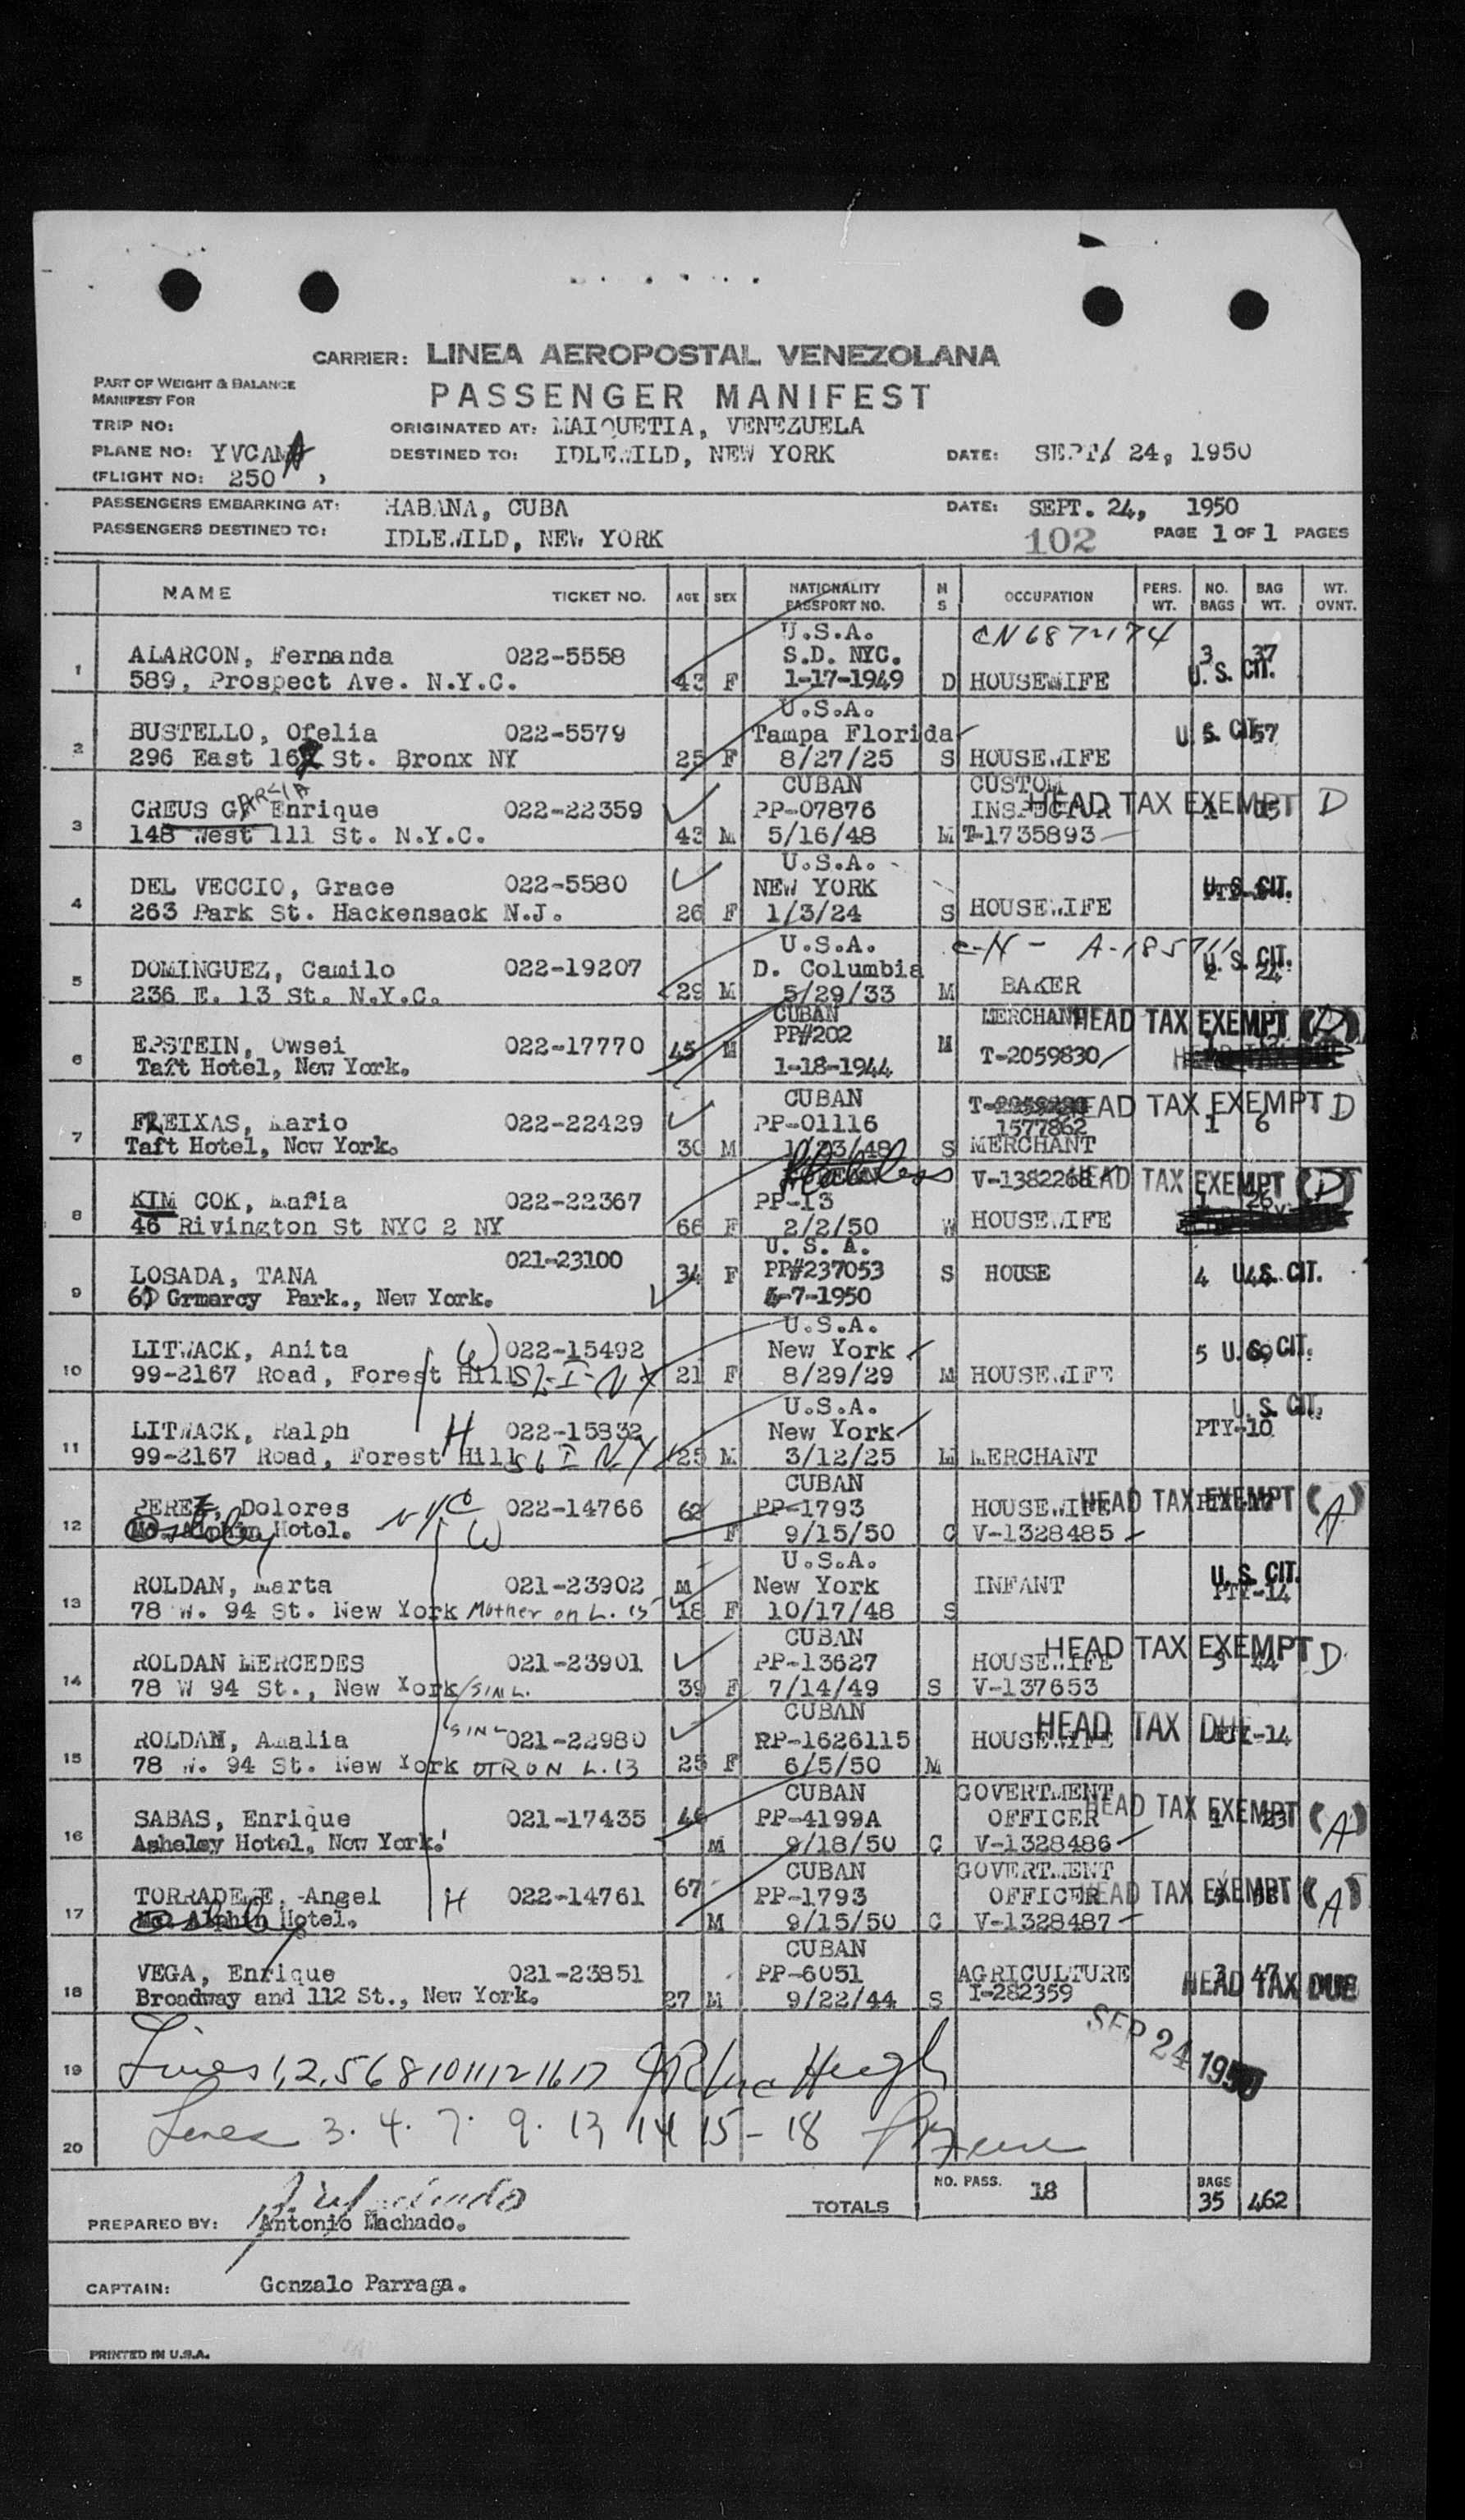 CARRIER: LINEA AEROPOSTAL VENEZOLANA
PART OF WEIGHT & BALANCE
MANIFEST FOR
PASSENGER MANIFEST
TRIP NO: ORIGINATED AT: MAIQUETIA, VENEZUELA
PLANE NO: YVCAMA DESTINED TO: IDLEWILD, NEW YORK DATE: SEPT/ 24, 1950
(FLIGHT NO: 250 )
PASSENGERS EMBARKING AT: HABANA, CUBA DATE: SEPT. 24, 1950
PASSENGERS DESTINED TO: IDLEWILD, NEW YORK 102 PAGE 1 OF 1 PAGES
NAME TICKET NO. AGE SEX NATIONALITY PASSPORT NO. M S OCCUPATION PERS. WT. NO. BAGS BAG WT. WT. OVNT.
U.S.A. CN 6872174
1 ALARCON, Fernanda 022-5558 S.D. NYC. 3 37
589, Prospect Ave. N.Y.C. 43 F 1-17-1949 D HOUSEWIFE U. S. CIT.
U.S.A.
2 BUSTELLO, Ofelia 022-5579 Tampa Florida U. S. CIT. 57
296 East 162 St. Bronx NY 25 F 8/27/25 S HOUSEWIFE
CUBAN CUSTOM
3 CREUS GARCIA Enrique 022-22359 PP-07876 INSPECTOR HEAD TAX EXEMPT D
148 West 111 St. N.Y.C. 43 M 5/16/48 M T-1735893
U.S.A.
4 DEL VECCIO, Grace 022-5580 NEW YORK U. S. CIT.
263 Park St. Hackensack N.J. 26 F 1/3/24 S HOUSEWIFE
U.S.A. C-N - A-185711
5 DOMINGUEZ, Camilo 022-19207 D. Columbia U. S. CIT.
236 E. 13 St. N.Y.C. 29 M 5/29/33 M BAKER 2 24
CUBAN MERCHANT HEAD TAX EXEMPT (D)
6 EPSTEIN, Owsei 022-17770 45 M PP#202 M T-2059830
Taft Hotel, New York. 1-18-1944
CUBAN HEAD TAX EXEMPT D
7 FREIXAS, Mario 022-22429 PP-01116 1577862 1 6
Taft Hotel, New York. 30 M 10/23/48 S MERCHANT
Stateless V-1382268 HEAD TAX EXEMPT (D)
8 KIM COK, Mafia 022-22367 PP-13 1 26
46 Rivington St NYC 2 NY 66 F 2/2/50 W HOUSEWIFE
021-23100 U. S. A.
9 LOSADA, TANA 34 F PP#237053 S HOUSE 4 44 U.S. CIT.
60 Grmarcy Park., New York. 4-7-1950
U.S.A.
10 LITWACK, Anita W 022-15492 New York 5 69 U.S. CIT.
99-2167 Road, Forest Hills L-I-NY 21 F 8/29/29 M HOUSEWIFE
U.S.A. U. S. CIT.
11 LITWACK, Ralph H 022-15832 New York PTY-10
99-2167 Road, Forest Hills L I NY 25 M 3/12/25 M MERCHANT
CUBAN
12 PEREZ, Dolores NYC 022-14766 62 PP-1793 HOUSEWIFE HEAD TAX EXEMPT (A)
Hotel. W F 9/15/50 C V-1328485
U.S.A.
13 ROLDAN, Marta 021-23902 M New York INFANT U. S. CIT. PTY-14
78 W. 94 St. New York Mother on L. 15 18 F 10/17/48 S
CUBAN HEAD TAX EXEMPT D
14 ROLDAN MERCEDES 021-23901 PP-13627 HOUSEWIFE 3 44
78 W 94 St., New York / SINL. 39 F 7/14/49 S V-137653
CUBAN
15 ROLDAN, Amalia SINL 021-23980 RP-1626115 HOUSEWIFE HEAD TAX DUE PTY-14
78 W. 94 St. New York DTR ON L. 13 25 F 6/5/50 M
CUBAN GOVERTMENT
16 SABAS, Enrique 021-17435 46 PP-4199A OFFICER HEAD TAX EXEMPT (A)
Asheley Hotel, New York. M 9/18/50 C V-1328486
CUBAN GOVERTMENT
17 TORRADEME, Angel H 022-14761 67 PP-1793 OFFICER HEAD TAX EXEMPT (A)
Hotel. M 9/15/50 C V-1328487
CUBAN
18 VEGA, Enrique 021-23851 PP-6051 AGRICULTURE 3 47 HEAD TAX DUE
Broadway and 112 St., New York. 27 M 9/22/44 S I-282359
SEP 24 1950
19 Lines 1,2,5 6 8 10 11 12 16 17
20 Lines 3. 4. 7. 9. 13 14 15 - 18
TOTALS NO. PASS. 18 BAGS 35 462
PREPARED BY: Antonio Machado.
CAPTAIN: Gonzalo Parraga.
PRINTED IN U.S.A.